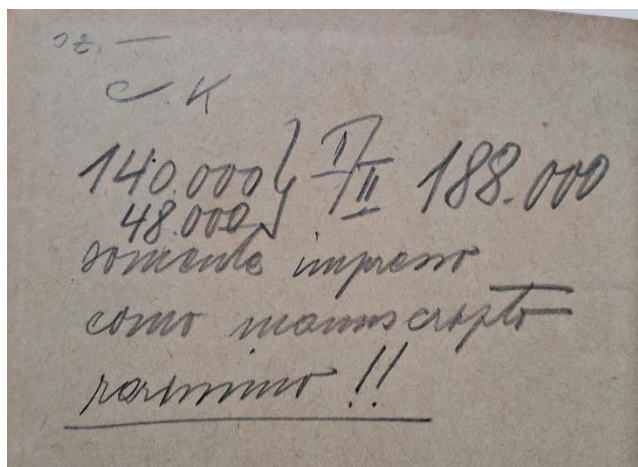 oz. —
C. K
140.000 } I/II 188.000
48.000
somente impresso
como manuscripto
rarissimo !!